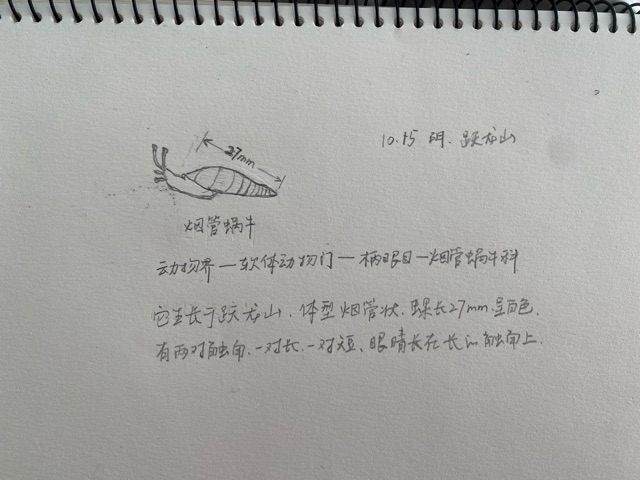 10.15 阴、跃龙山
27mm
烟管蜗牛
动物界一软体动物门一柄眼目一烟管蜗牛科
它生长于跃龙山、体型烟管状、螺长27mm、呈白色、
有两对触角、一对长、一对短、眼睛长在长的触角上、